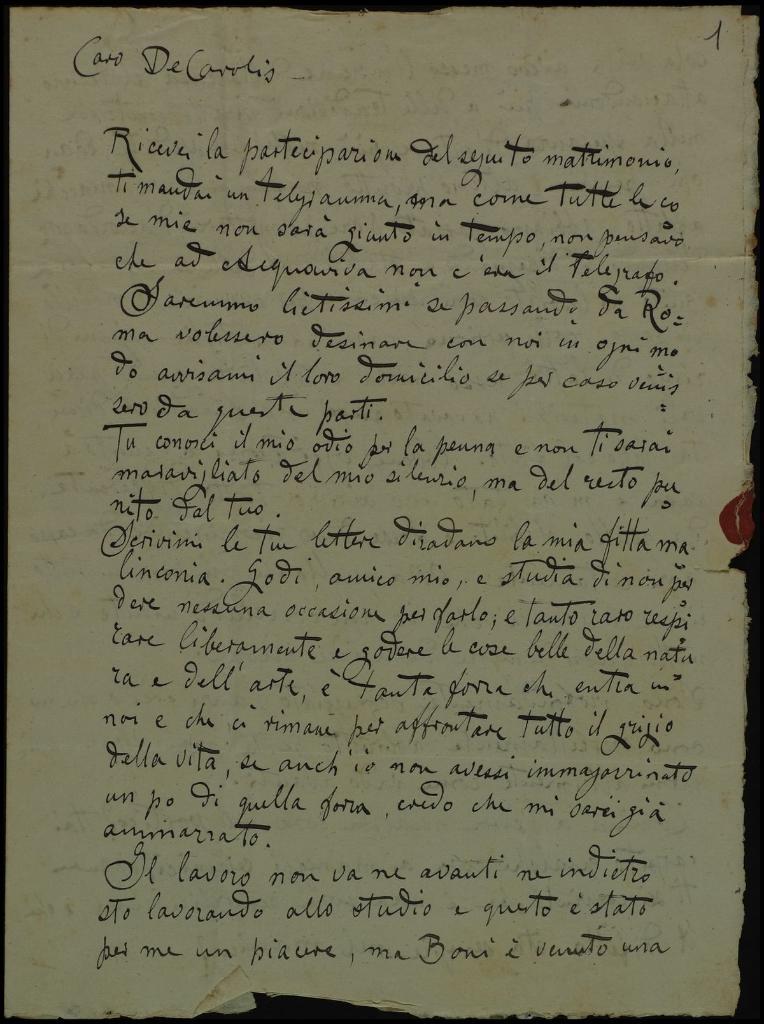 1
Caro De Carolis –
Ricevei la partecipazione del seguito matrimonio,
ti mandai un telegramma, ma come tutte le co
se mie non sarà giunto in tempo, non pensavo
che ad Acquaviva non c'era il telegrafo.
Saremmo lietissimi se passando da Ro=
ma volessero desinare con noi in ogni mo
do avvisami il loro domicilio se per caso venis
=
sero da queste parti.
Tu conosci il mio odio per la penna e non ti sarai
maravigliato del mio silenzio, ma del resto pu
=
nito dal tuo.
Scrivimi le tue lettere diradano la mia fitta ma
linconia. Godi, amico mio, e studia di non per
dere nessuna occasione per farlo; e tanto raro respi
rare liberamente e godere le cose belle della natu
ra e dell'arte, è tanta forza che entra in
noi e che ci rimane per affrontare tutto il grigio
della vita, se anch'io non avessi immagazzinato
un po di quella forza, credo che mi sarei già
ammazzato.
Il lavoro non va ne avanti ne indietro
sto lavorando allo studio e questo è stato
per me un piacere, ma Boni è venuto una